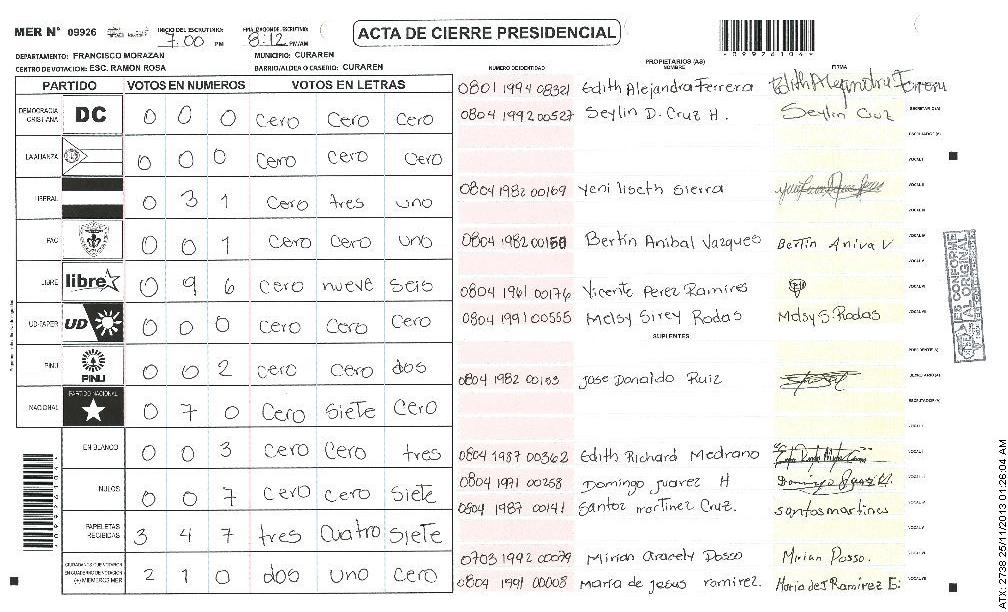 MER Nº 09926 INICIO DEL ESCRUTINIO: 7:00 PM 8:12 PM/AM
ACTA DE CIERRE PRESIDENCIAL
DEPARTAMENTO: FRANCISCO MORAZAN MUNICIPIO: CURAREN
CENTRO DE VOTACION: ESC. RAMON ROSA BARRIO/ALDEA O CASERIO: CURAREN
PARTIDO VOTOS EN NUMEROS VOTOS EN LETRAS
DEMOCRACIA CRISTIANA DC 0 0 0 cero cero cero
LA ALIANZA 0 0 0 cero cero cero
LIBERAL 0 3 1 cero tres uno
PAC 0 0 1 cero cero uno
LIBRE libre 0 9 6 cero nueve seis
UD-FAPER UD 0 0 0 cero cero cero
PINU PINU 0 0 2 cero cero dos
NACIONAL PARTIDO NACIONAL 0 7 0 cero siete cero
EN BLANCO 0 0 3 cero cero tres
NULOS 0 0 7 cero cero siete
PAPELETAS RECIBIDAS 3 4 7 tres cuatro siete
2 1 0 dos uno cero
NUMERO DE IDENTIDAD PROPIETARIOS (AS) NOMBRE FIRMA
0801 1994 08321 Edith Alejandra Ferrera Edith Alejandra Ferrera
0804 1992 00527 Seylin D. Cruz H. Seylin Cruz
0804 1982 00169 Yeni liseth Sierra
0804 1982 00150 Bertin Anibal Vazques Bertin Aniva V
0804 1961 00176 Vicente Perez Ramires
0804 1991 00555 Melsy Sirey Rodas Melsy S. Rodas
SUPLENTES
0804 1982 00153 Jose Donaldo Ruiz
0804 1987 00362 Edith Richard Medrano
0804 1971 00258 Domingo juarez H Domingo Juarez H.
0804 1987 00141 Santoz martinez Cruz. santos martines
0703 1992 00079 Mirian aracely Posso Mirian Posso.
0804 1991 00008 maria de jesus ramirez. Maria de J Ramirez E:
ES CONFORME AL ORIGINAL
ATX-2738 25/11/2013 01:26:04 AM